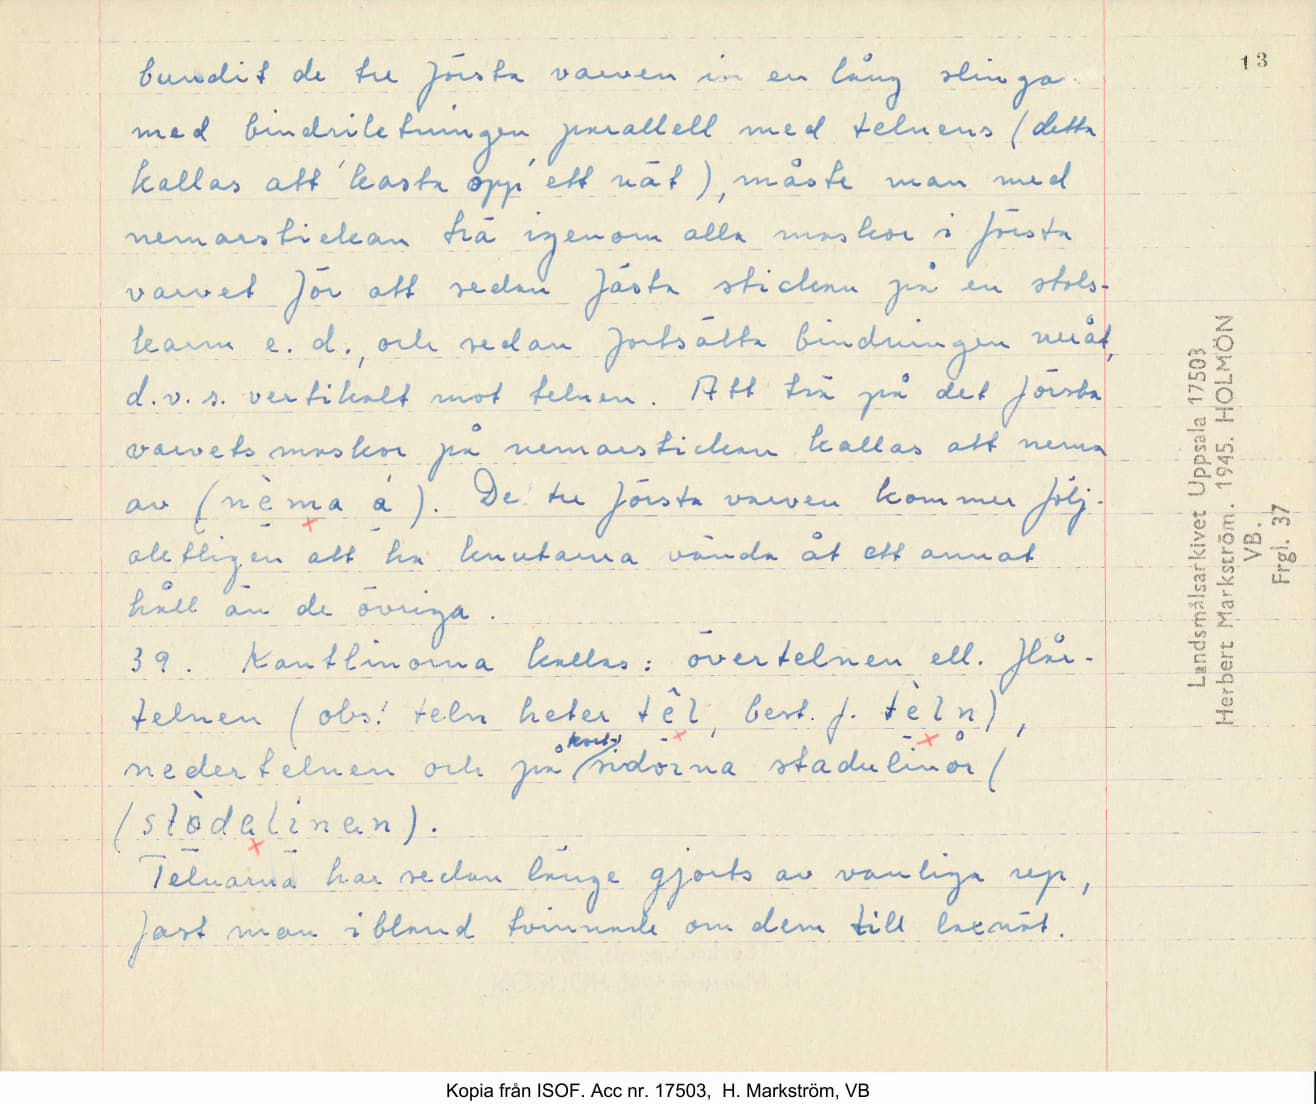 13
bundit de tre första varven in en lång slinga
med bindriktningen parallell med telnens (detta
kallas att 'kasta opp' ett nät), måste man med
nemarstickan trä igenom alla maskor i första
varvet för att sedan fästa stickan på en stols-
karm e. d., och sedan fortsätta bindningen neråt,
d.v.s. vertikalt mot telnen. Att trä på det första
varvets maskor på nemarstickan kallas att nema
av (nèma á). De tre första varven kommer följ-
aktligen att ha knutarna vända åt ett annat
håll än de övriga.
39. Kantlinorna kallas: övertelnen ell. flår-
telnen (obs! teln heter têl, best. f. tèln),
nedertelnen och på kort-sidorna stadulinor (
(stòdalinen).
Telnarna har sedan länge gjorts av vanliga rep,
fast man ibland tvinnade om dem till laxnät.
Landsmålsarkivet Uppsala 17503
Herbert Markström. 1945. HOLMÖN
VB.
Frgl. 37
Kopia från ISOF. Acc nr. 17503, H. Markström, VB